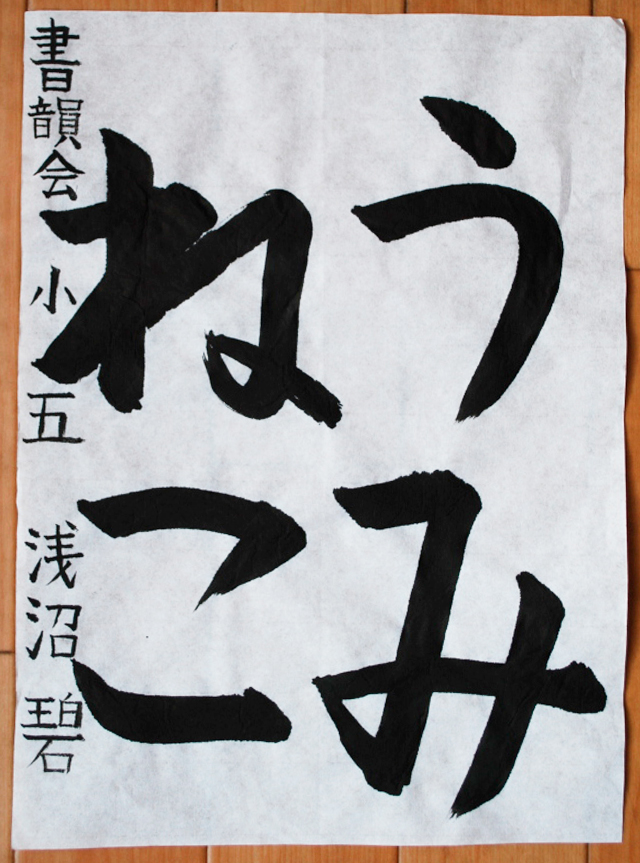 うみ
ねこ
書韻会 小五 浅沼 碧